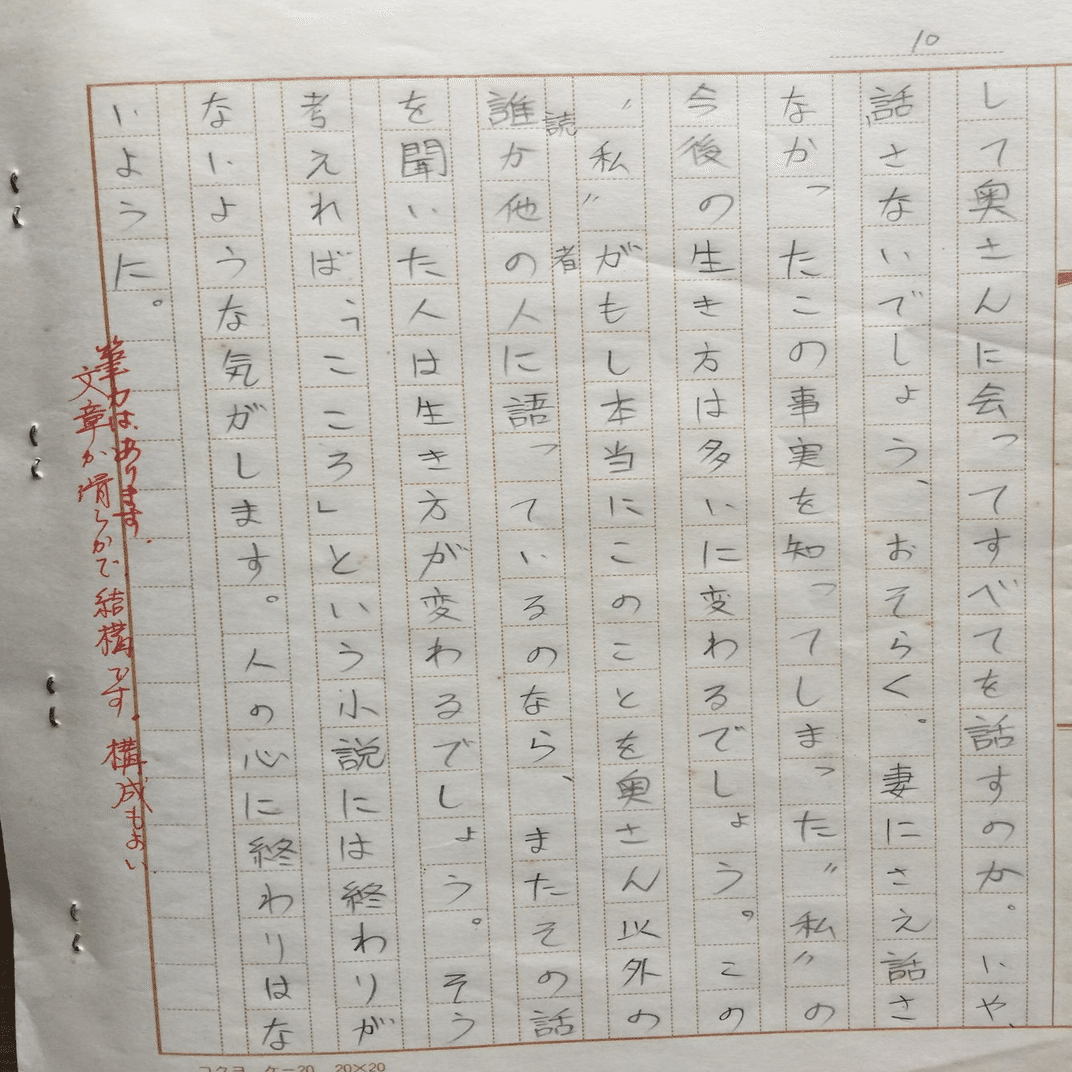 10
して奥さんに会ってすべてを話すのか。いや、
話さないでしょう、おそらく。妻にさえ話さ
なかったこの事実を知ってしまった〝私〟の
今後の生き方は多いに変わるでしょう。この
〝私〟がもし本当にこのことを奥さん以外の
読者
誰か他の人に語っているのなら、またその話
を聞いた人は生き方が変わるでしょう。そう
考えれば、「こころ」という小説には終わりが
ないような気がします。人の心に終わりはな
いように。
筆力はあります。
文章が滑らかで結構です。構成もよい
コクヨ ケー20 20×20